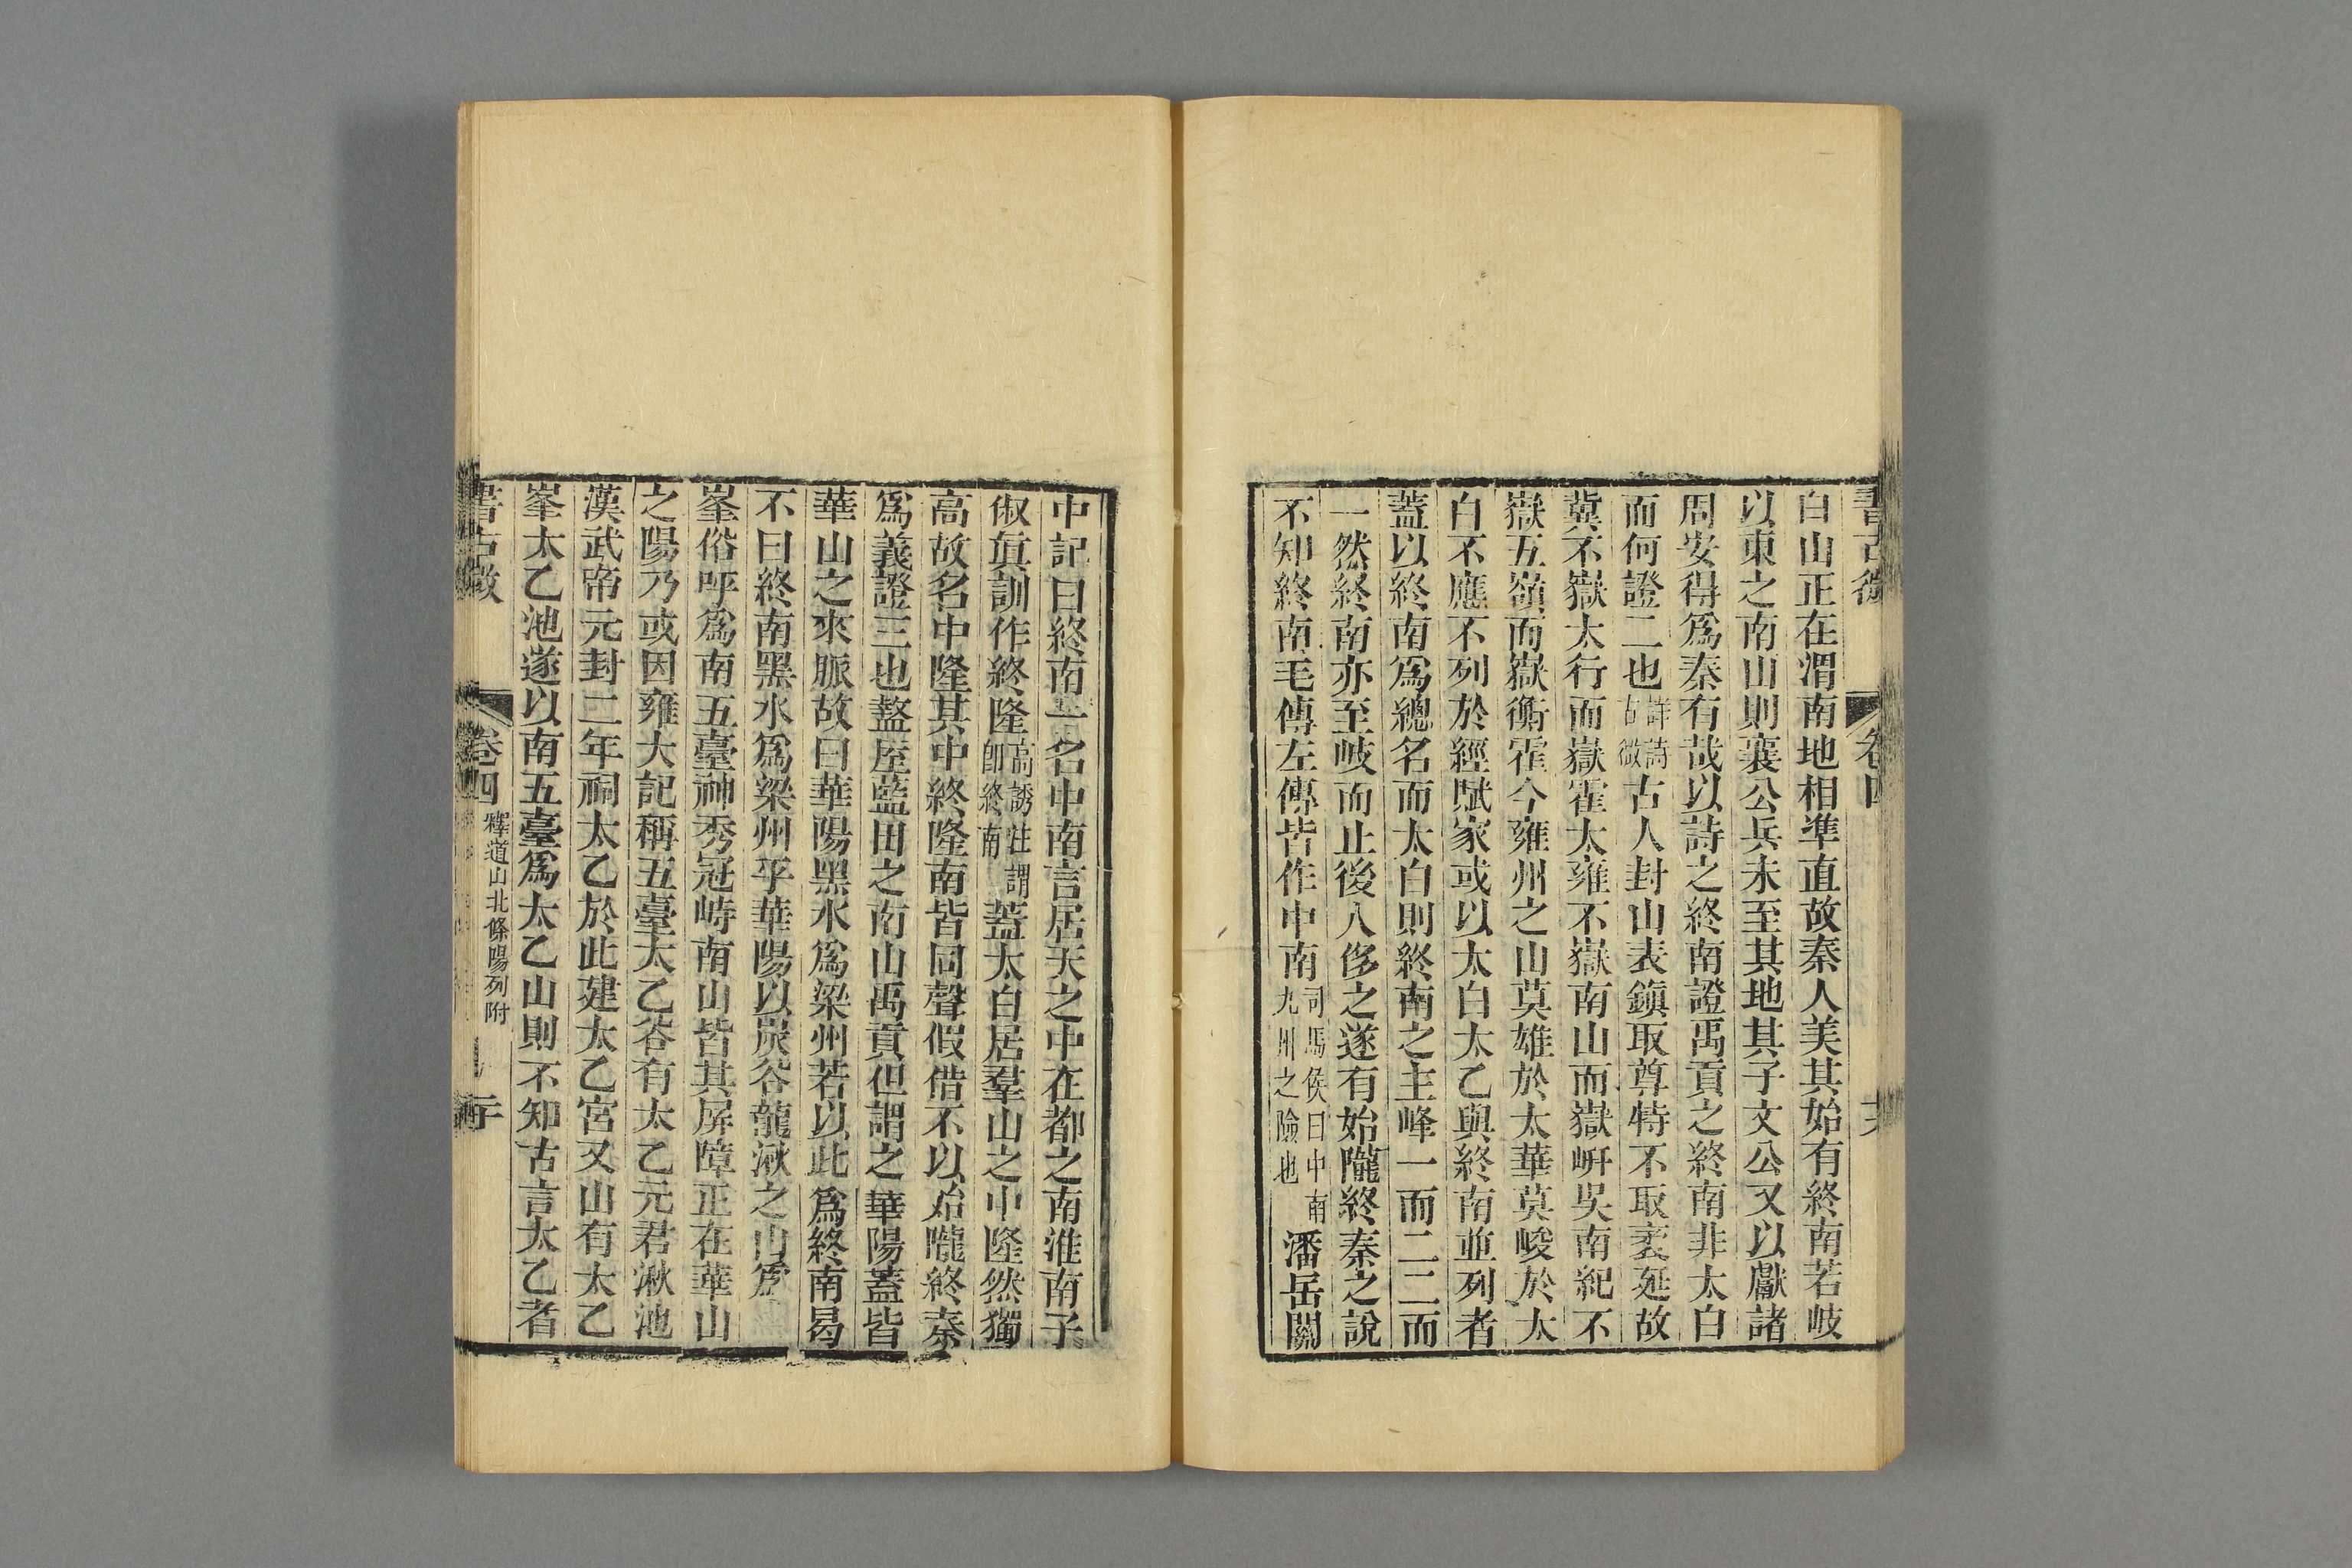 書古微 卷四
白山正在渭南地相準直故秦人美其始有終南若岐
以東之南山則襄公兵未至其地其子文公又以獻諸
周安得爲秦有哉以詩之終南證禹貢之終南非太白
而何證二也詳詩古微古人封山表鎮取尊特不取袤延故
冀不嶽太行而嶽霍太雍不嶽南山而嶽岍吳南紀不
嶽五嶺而嶽衡霍今雍州之山莫雄於太華莫峻於太
白不應不列於經賦家或以太白太乙與終南並列者
蓋以終南爲總名而太白則終南之主峰一而二二而
一然終南亦至岐而止後人侈之遂有始隴終秦之說
不知終南毛傳左傳皆作中南司馬侯曰中南九州之險也潘岳關
中記曰終南一名中南言居天之中在都之南淮南子
俶眞訓作終隆高誘注謂卽終南蓋太白居羣山之中隆然獨
高故名中隆其中終隆南皆同聲假借不以始隴終秦
爲義證三也盩厔藍田之南山禹貢但謂之華陽蓋皆
華山之來脈故曰華陽黑水爲梁州若以此爲終南曷
不曰終南黑水爲梁州乎華陽以炭谷龍湫之山爲
峯俗呼爲南五臺神秀冠峙南山皆其屏障正在華山
之陽乃或因雍大記稱五臺太乙谷有太乙元君湫池
漢武帝元封二年祠太乙於此建太乙宮又山有太乙
峯太乙池遂以南五臺爲太乙山則不知古言太乙者
書古微 卷四 釋道山北條陽列附